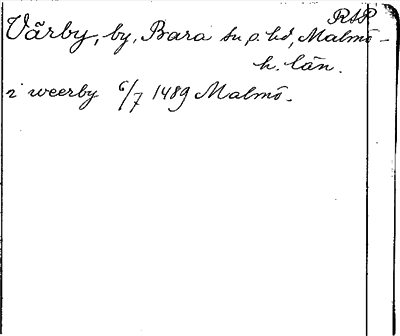 RAP
Värby, by, Bara sn o. hd, Malmö-
h. län.
i weerby 6/7 1489 Malmö.